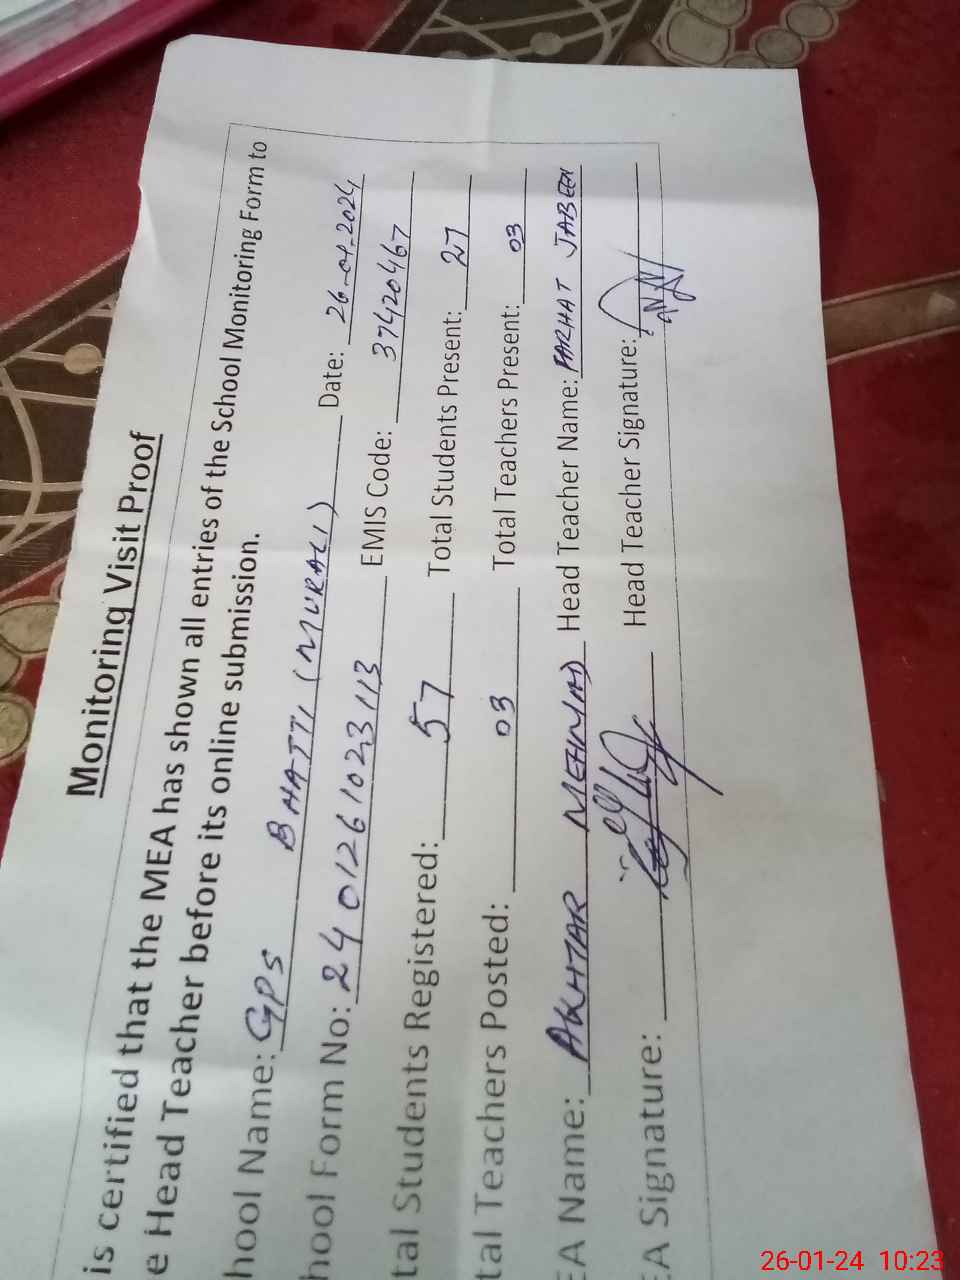 Monitoring Visit Proof
is certified that the MEA has shown all entries of the School Monitoring Form to
e Head Teacher before its online submission.
hool Name: GPS BHATTI (MURALI) Date: 26-01-2024
hool Form No: 2401261023113 EMIS Code: 37420467
tal Students Registered: 57 Total Students Present: 27
tal Teachers Posted: 03 Total Teachers Present: 03
EA Name: AKHTAR MEHMOOD Head Teacher Name: FARHAT JABEEN
EA Signature: Head Teacher Signature:
26-01-24 10:23